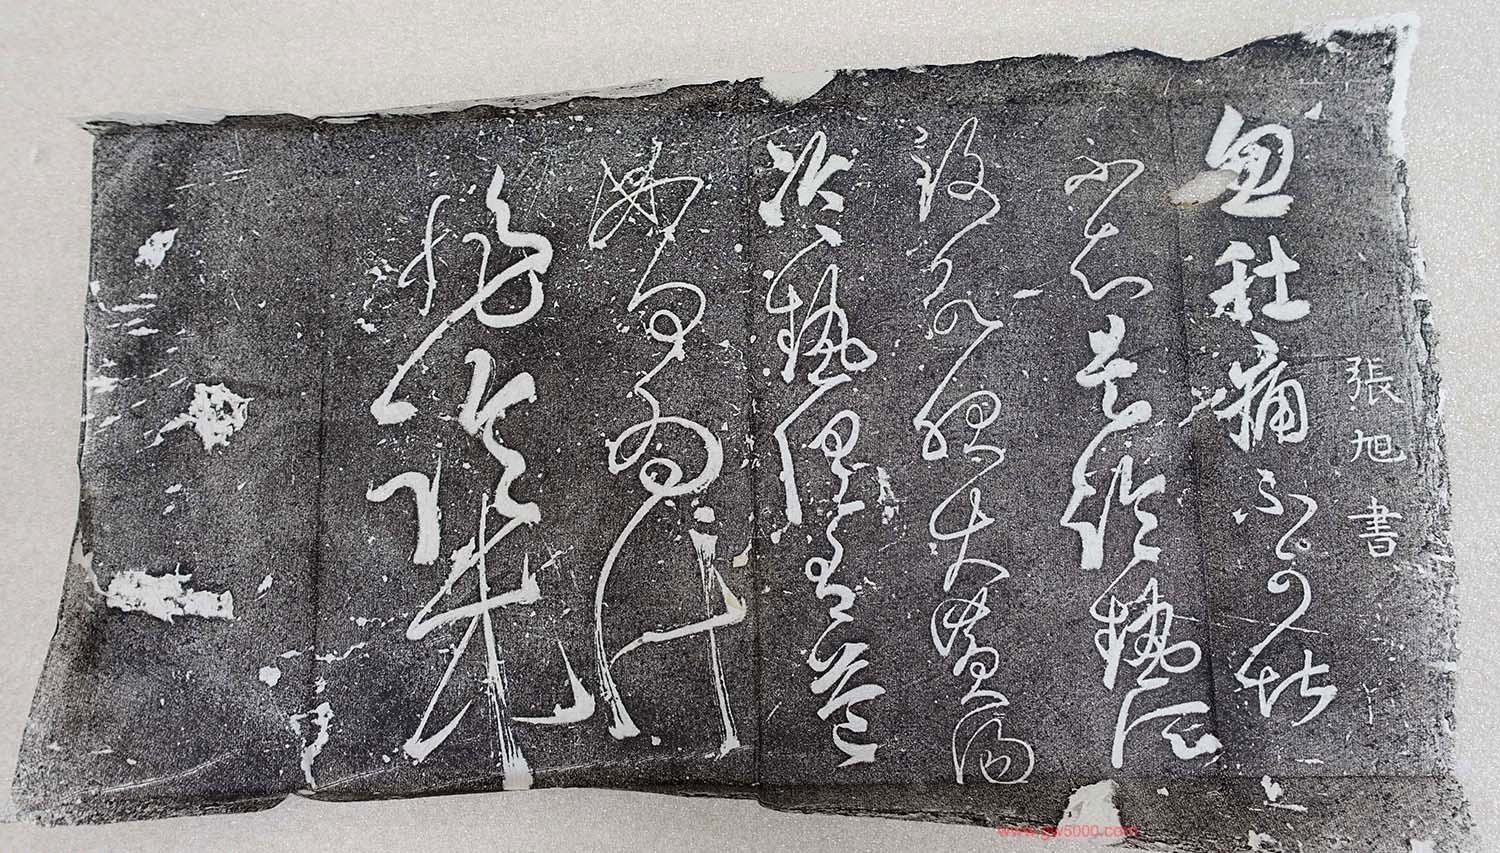 張旭書
忽肚痛不可堪
不知是冷熱所
致欲服大黃湯
冷熱俱有益
如何為計
非臨床
www.gw5000.com